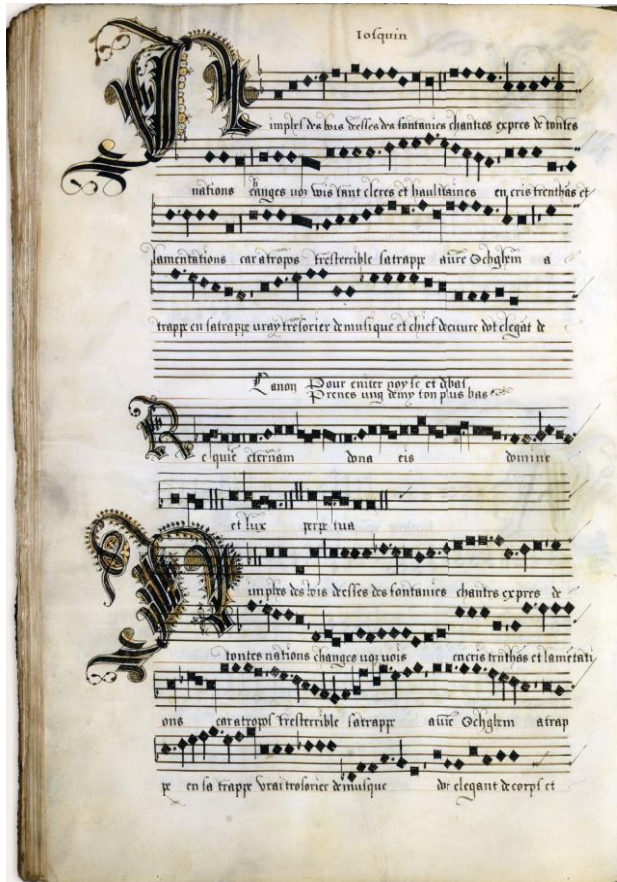 Iosquin
imphes des bois deesses des fontaines chantres expres de toutes
nations changes voz vois tant cleres et haultaines en cris trenchas et
lamentations car atropos tresterrible satrappe a
trappe en sa trappe vray tresorier de musique et chief deuure elegãt de
Canon Pour euiter noyse et dbas
Prenes ung demy ton plus bas
Requie eternam dona eis domine
et lux perpetua
imphes des bois deesses des fontaines chantres expres de
toutes nations changes voz vois en cris trenchas et lametati
ons car atropos tresterrible satrappe atrap
pe en sa trappe vrai tresorier de musque elegant de corps et